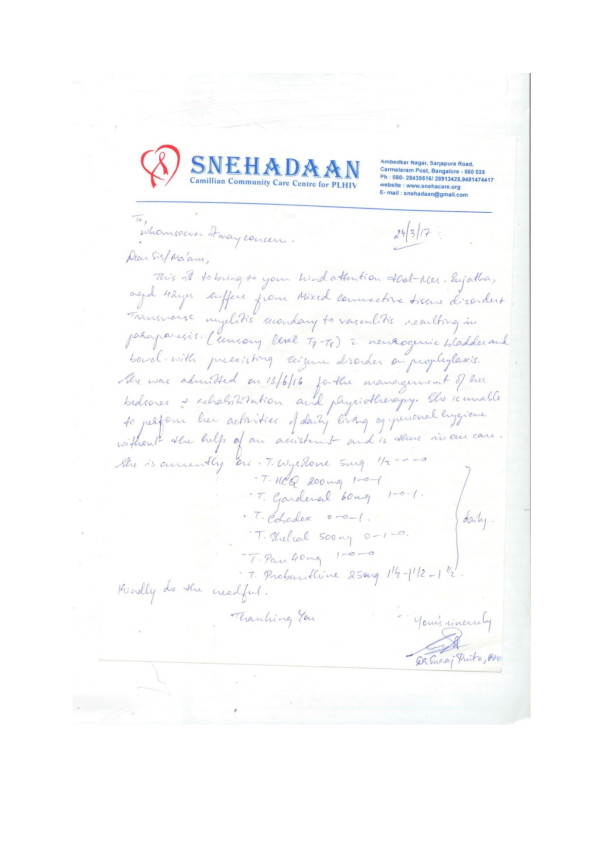 SNEHADAAN
Camillian Community Care Centre for PLHIV
Ambedkar Nagar, Sarjapura Road,
Carmelaram Post, Bangalore - 560 035
Ph : 080- 28439516/ 28913428,9481474417
website : www.snehacare.org
E- mail : snehadaan@gmail.com
To,
Whomsoever it may concern.
24/3/17
Dear Sir/Ma'am,
This is to bring to your kind attention that Mrs. Sujatha,
aged 42yrs suffers from Mixed connective tissue disorder
Transverse myelitis secondary to vasculitis resulting in
paraparesis. (sensory level T7-T8) c neurogenic bladder and
bowel with preexisting seizure disorder on prophylaxis.
She was admitted on 13/6/16 for the management of her
bedsores + rehabilitation and physiotherapy. She is unable
to perform her activities of daily living eg. personal hygiene
without the help of an assistant and is there in our care.
She is currently on · T. Wysolone 5mg 1/2 -o-o
· T. HCQ 200mg 1-o-1
· T. Gardenal 60mg 1-o-1.
· T. Cobadex o-o-1.
· T. Shelcal 500mg o-1-o.
· T. Pan 40mg 1-o-o
· T. Probanthine 25mg 1½-1½-1½.
daily.
Kindly do the needful.
Thanking You
Your's sincerely
Dr. Suraj Pinto,